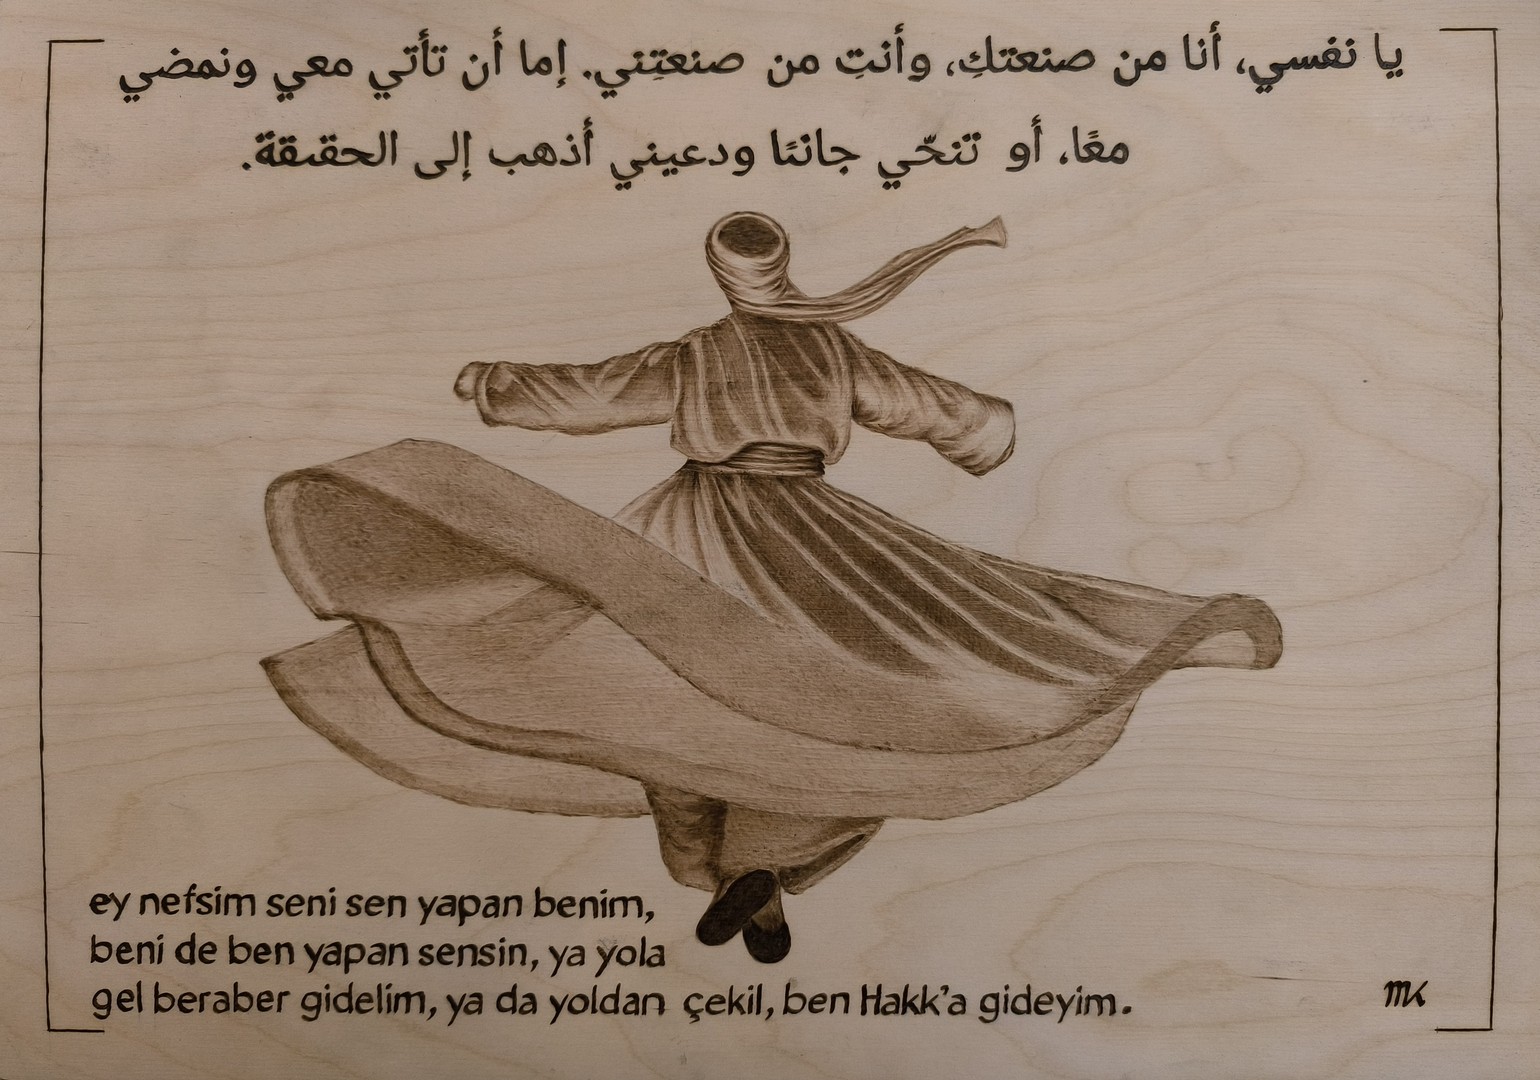 يا نفسي، أنا من صنعتكِ، وأنتِ من صنعتِني. إما أن تأتي معي ونمضي
معًا، أو تنحّي جانبًا ودعيني أذهب إلى الحقيقة.
ey nefsim seni sen yapan benim,
beni de ben yapan sensin, ya yola
gel beraber gidelim, ya da yoldan çekil, ben Hakk'a gideyim.
MK